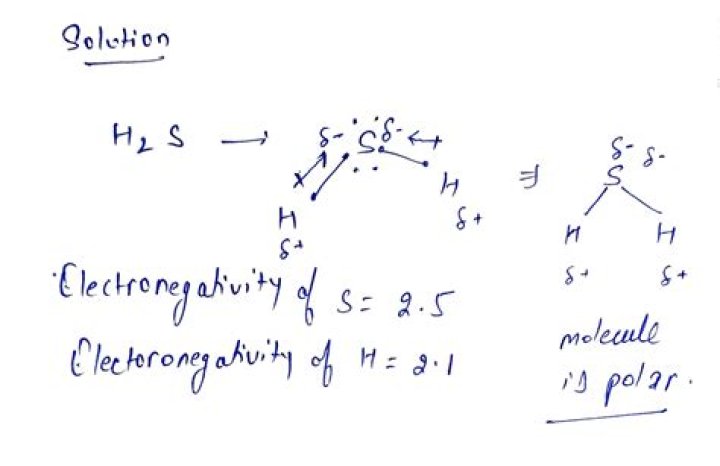 Solution
H₂S → δ- S δ- ↔
H
δ+
H
δ+
⇒
δ- δ-
S
H H
δ+ δ+
Electronegativity of S = 2.5
Electoronegativity of H = 2.1
molecule
is polar.